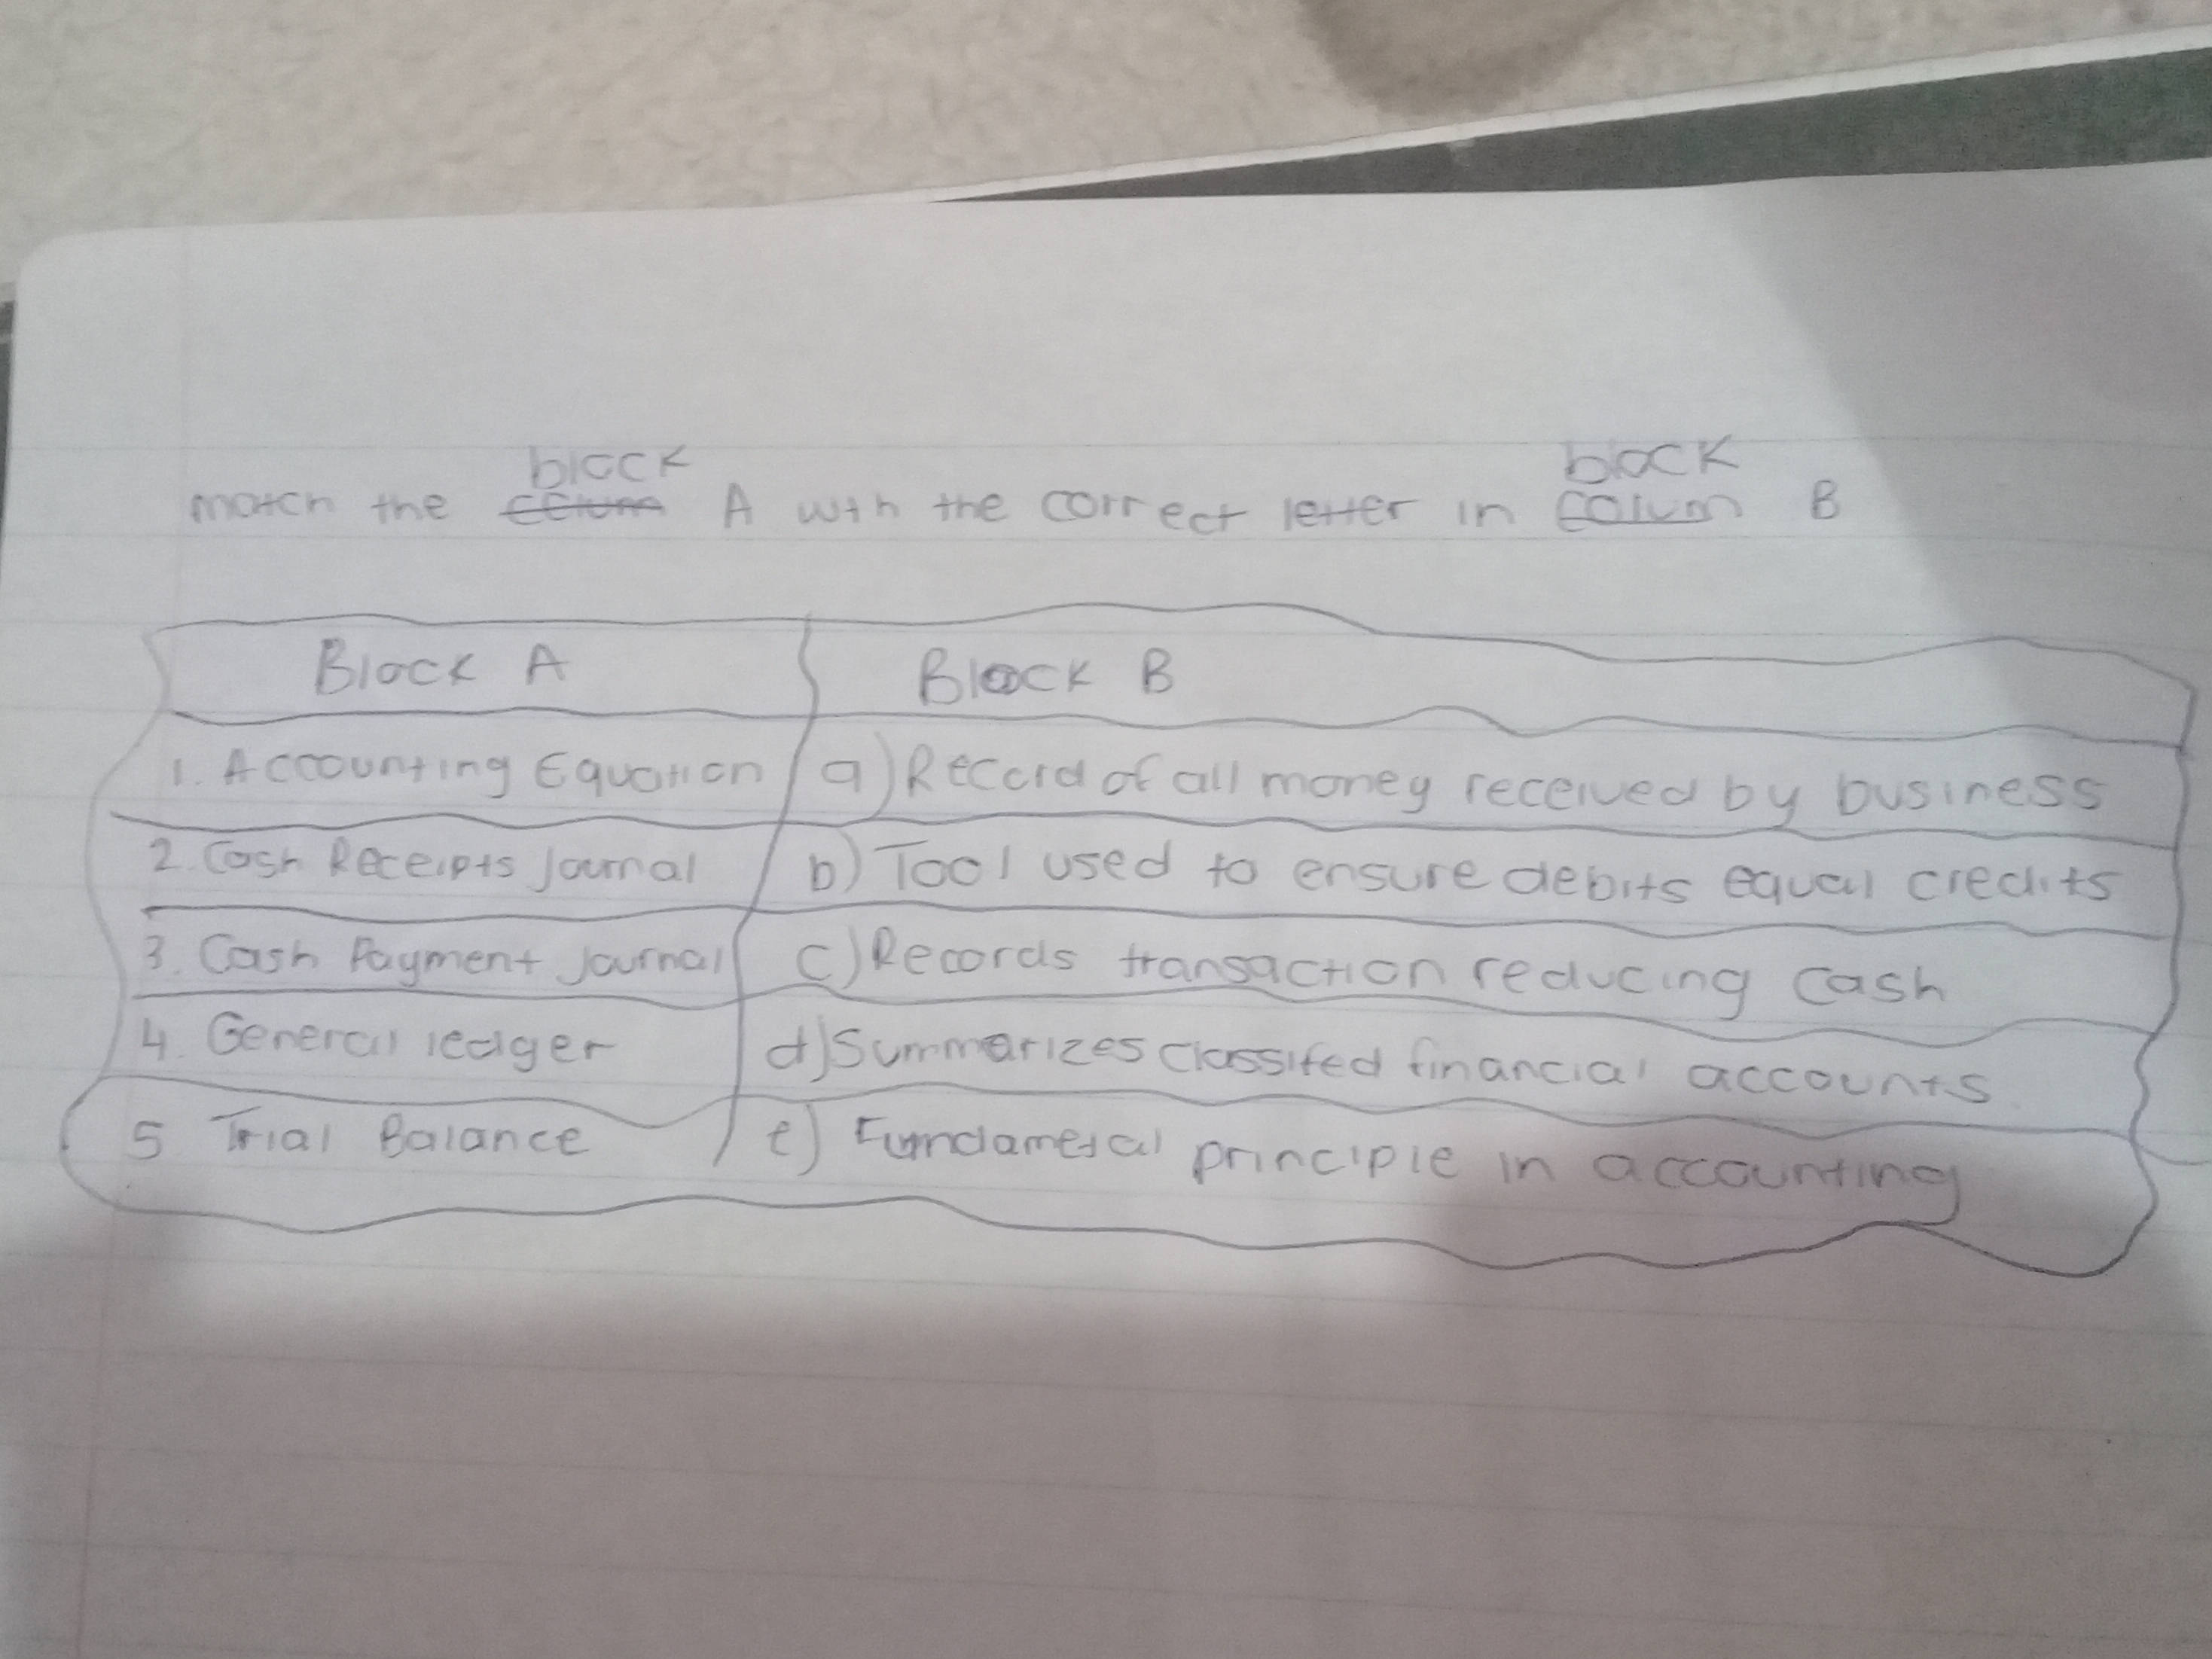 block block
match the colum A wth the correct letter in colum B
Block A Block B
1. Accounting Equation a) Record of all money received by business
2. Cash Receipts Journal b) Tool used to ensure debits equal credits
3. Cash Payment Journal c) Records transaction reducing cash
4. General ledger d) Summarizes classifed financial accounts
5 Trial Balance e) Fundametal principle in accounting